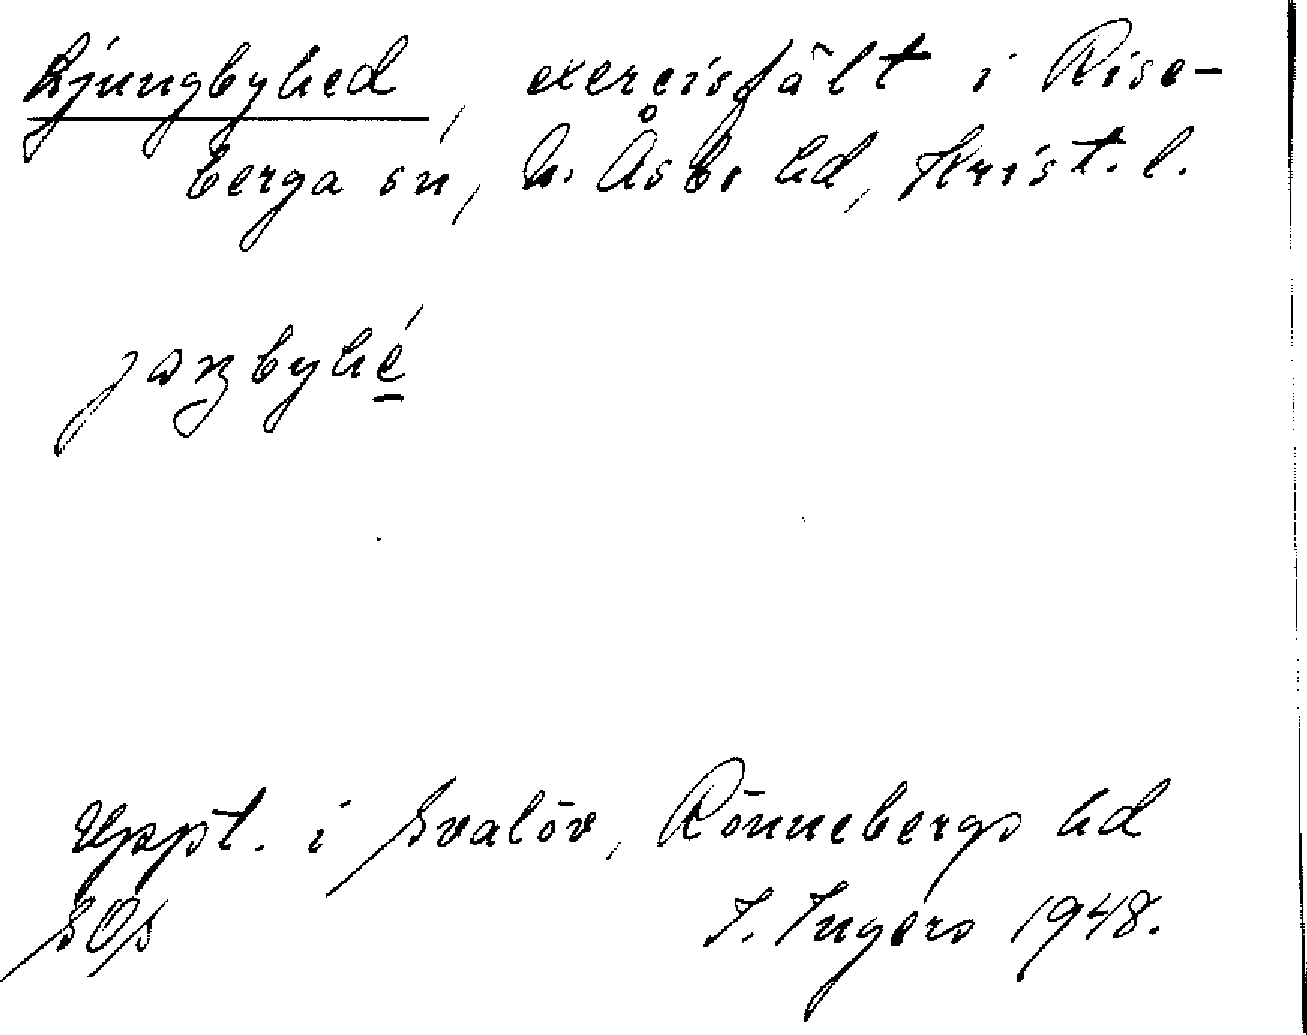 Ljungbyhed, exercisfält i Rise-
berga sn, N. Åsbo hd, Krist. l.
Uppt. i Svalöv, Rönnebergs hd
SOS I. Ingers 1948.